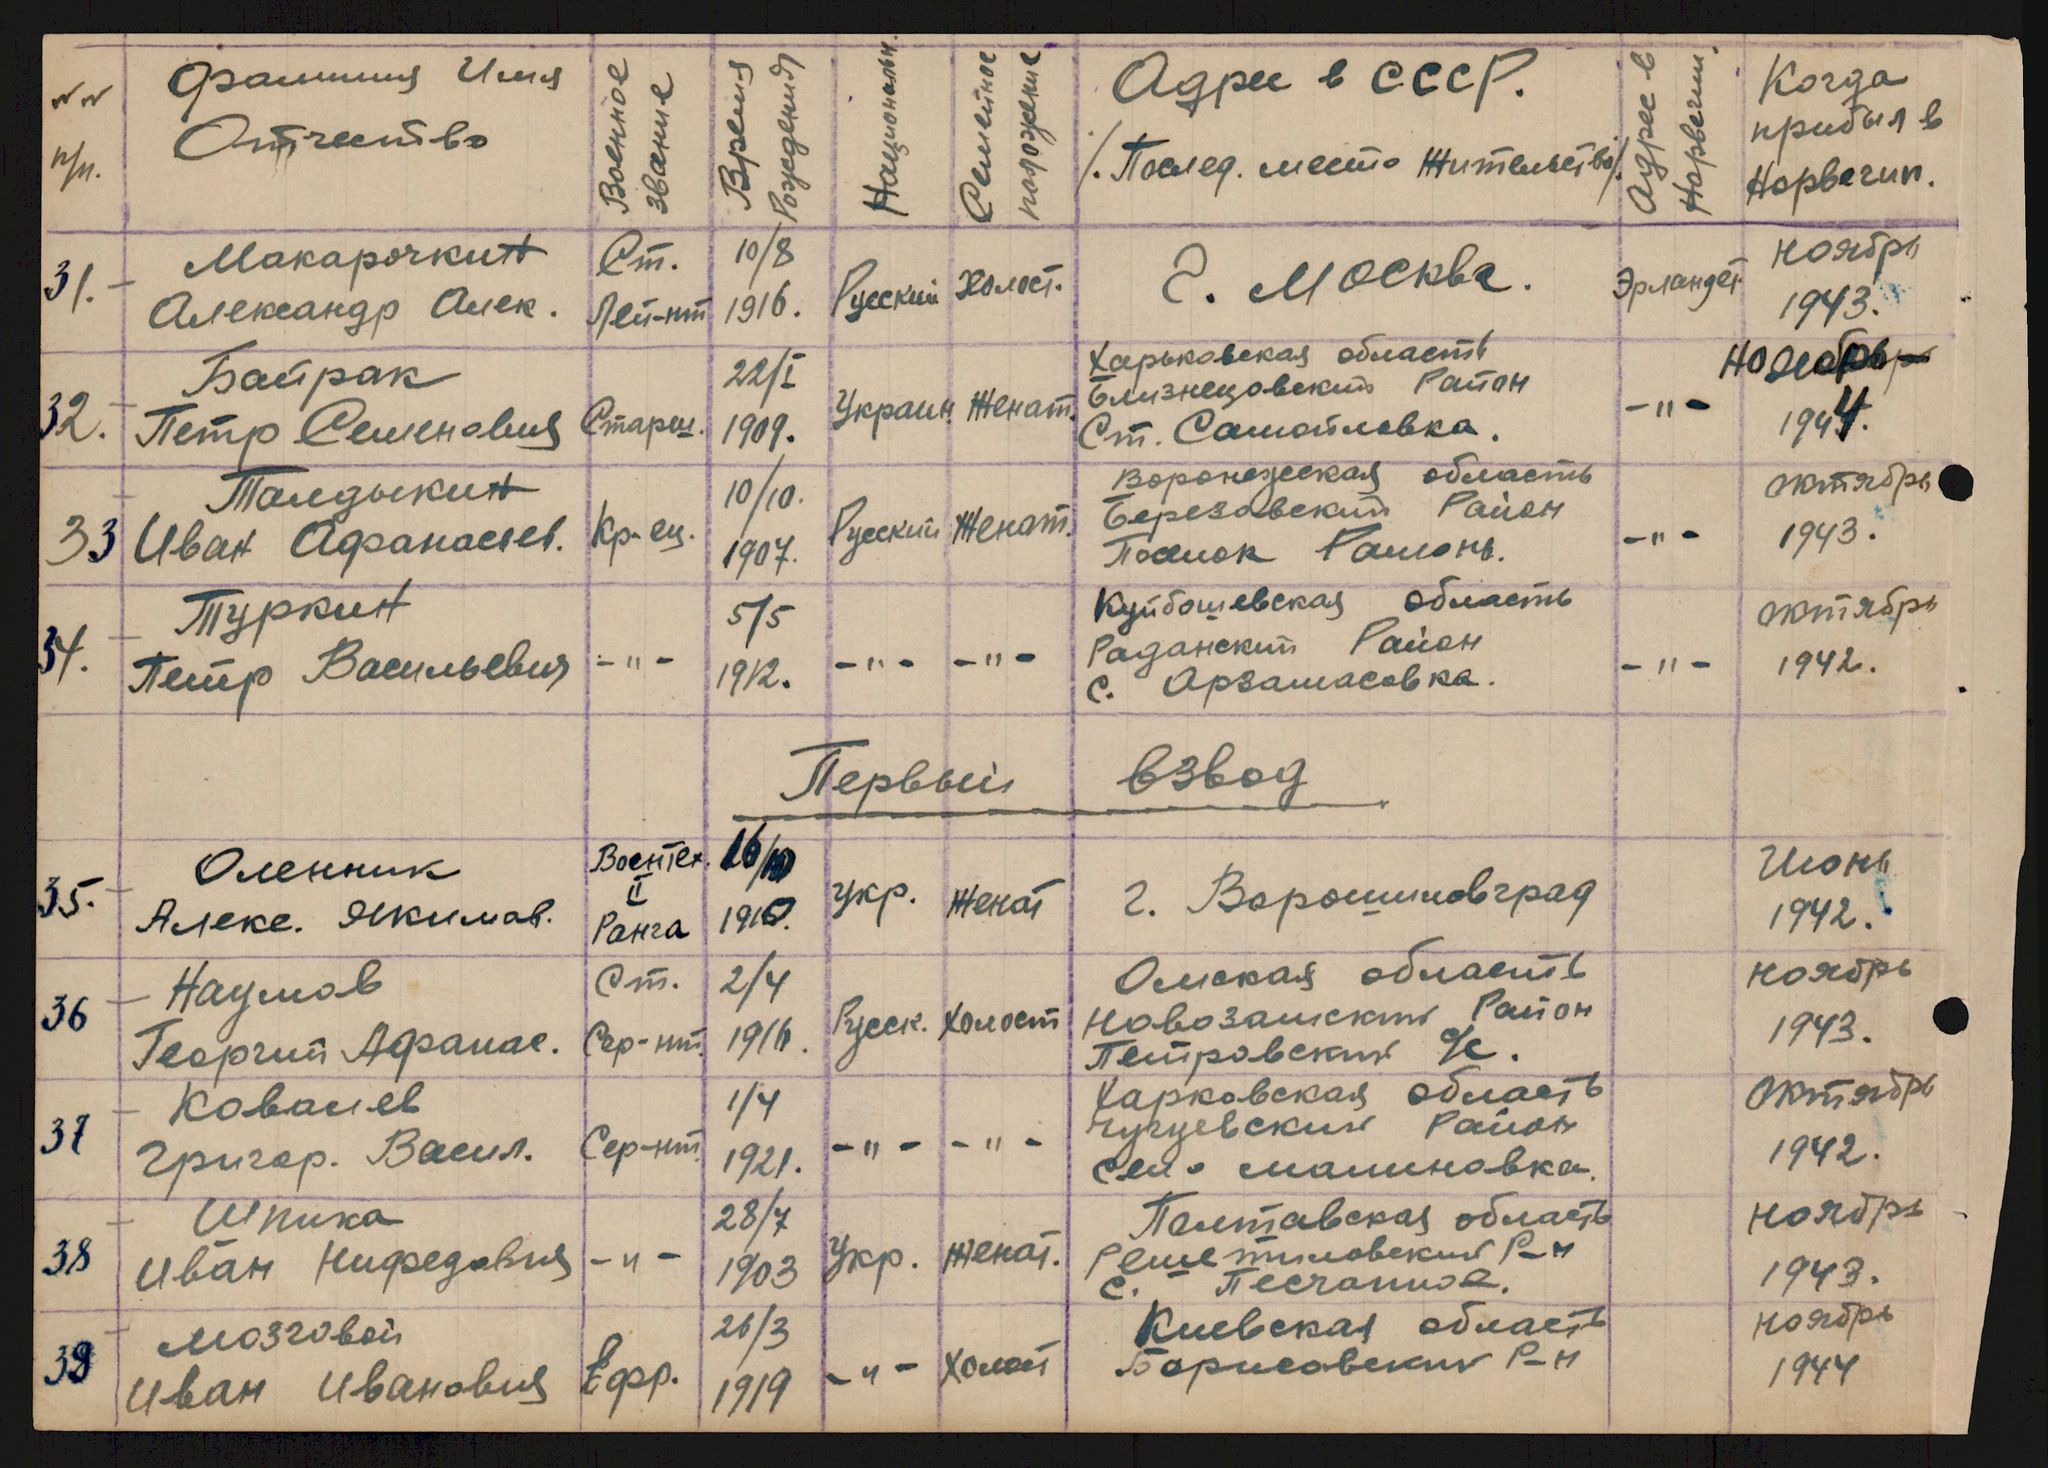 №№ п/п. | Фамилия Имя Отчество | Военное звание | Время Рождения | Националън. | Семейное положение | Адрес в СССР. /. Послед. место Жительства/. | Адрес в Норвегии. | Когда прибыл в Норвегии.
31. | Макарочкин Александр Алек. | Ст. Лей-нт | 10/8 1916. | Русский | Холост. | г. Москва. | Эрландет | ноябрь 1943.
32. | Байрак Петр Семенович | Старш. | 22/I 1909. | Украин. | Женат. | Харьковская область Близнецовский Район Ст. Самойловка. | -"- | ноябрь 1944.
33 | Талдыкин Иван Афанасьев. | Кр-ец. | 10/10. 1907. | Русский | Женат. | Воронежская область Березовский Район Посиок Рамонь. | -"- | октябрь 1943.
34. | Туркин Петр Васильевич | -"- | 5/5 1912. | -"- | -"- | Куйбошевская область Раданский Район с. Арзамасовка. | -"- | октябрь 1942.
Первый взвод
35. | Оленник Алекс. Якимов. | Воентех. II Ранга | 16/10 1910. | Укр. | Женат | г. Ворошиловград | Июнь 1942.
36 | Наумов Георгий Афанас. | Ст. Сер-нт. | 2/4 1916. | Русск. | Холост | Омская область Новозамский Район Петровский с/с. | ноябрь 1943.
37 | Ковалев Григор. Васил. | Сер-нт. | 1/4 1921. | -"- | -"- | Харковская область Чугуевский Район село Малиновка. | Октябрь 1942.
38 | Шпика Иван Нифедович | -"- | 28/7 1903 | Укр. | Женат. | Полтавская область Решетиловский Р-н с. Песчаное. | ноябрь 1943.
39 | Мозговой Иван Иванович | Ефр. | 26/3 1919 | -"- | Холост | Киевская область Борисовский Р-н | ноябрь 1944